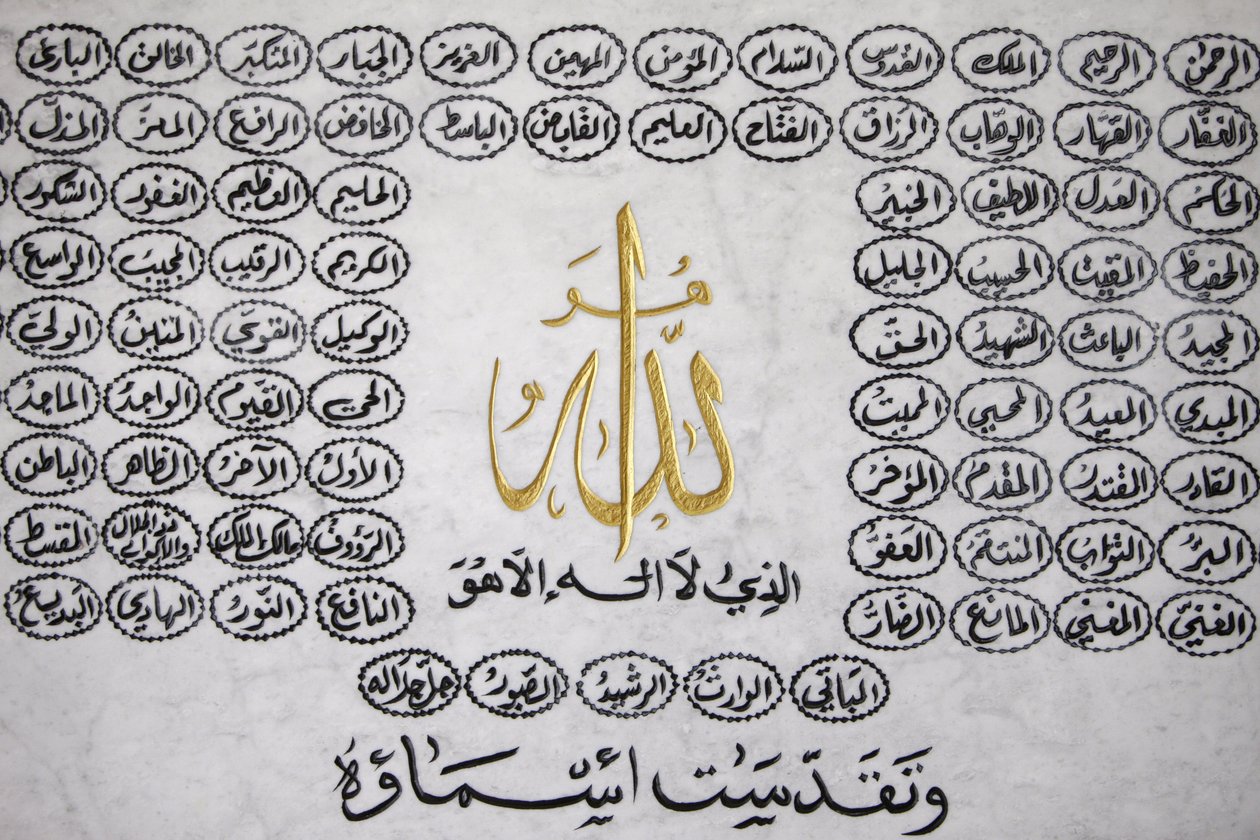 الرحمن الرحيم الملك القدوس السلام المؤمن المهيمن العزيز الجبار المتكبر الخالق البارئ
الغفار القهار الوهاب الرزاق الفتاح العليم القابض الباسط الخافض الرافع المعز المذل
الحكم العدل اللطيف الخبير الحليم العظيم الغفور الشكور
الحفيظ المقيت الحسيب الجليل الكريم الرقيب المجيب الواسع
هو الله
المجيد الباعث الشهيد الحق الوكيل القوي المتين الولي
المبدي المعيد المحيي المميت الحي القيوم الواجد الماجد
القادر المقتدر المقدم المؤخر الأول الآخر الظاهر الباطن
البر التواب المنتقم العفو الرؤوف مالك الملك ذو الجلال والإكرام المقسط
الذي لا اله إلا هو
الغني المغني المانع الضار النافع النور الهادي البديع
الباقي الوارث الرشيد الصبور جل جلاله
وتقدست أسماؤه